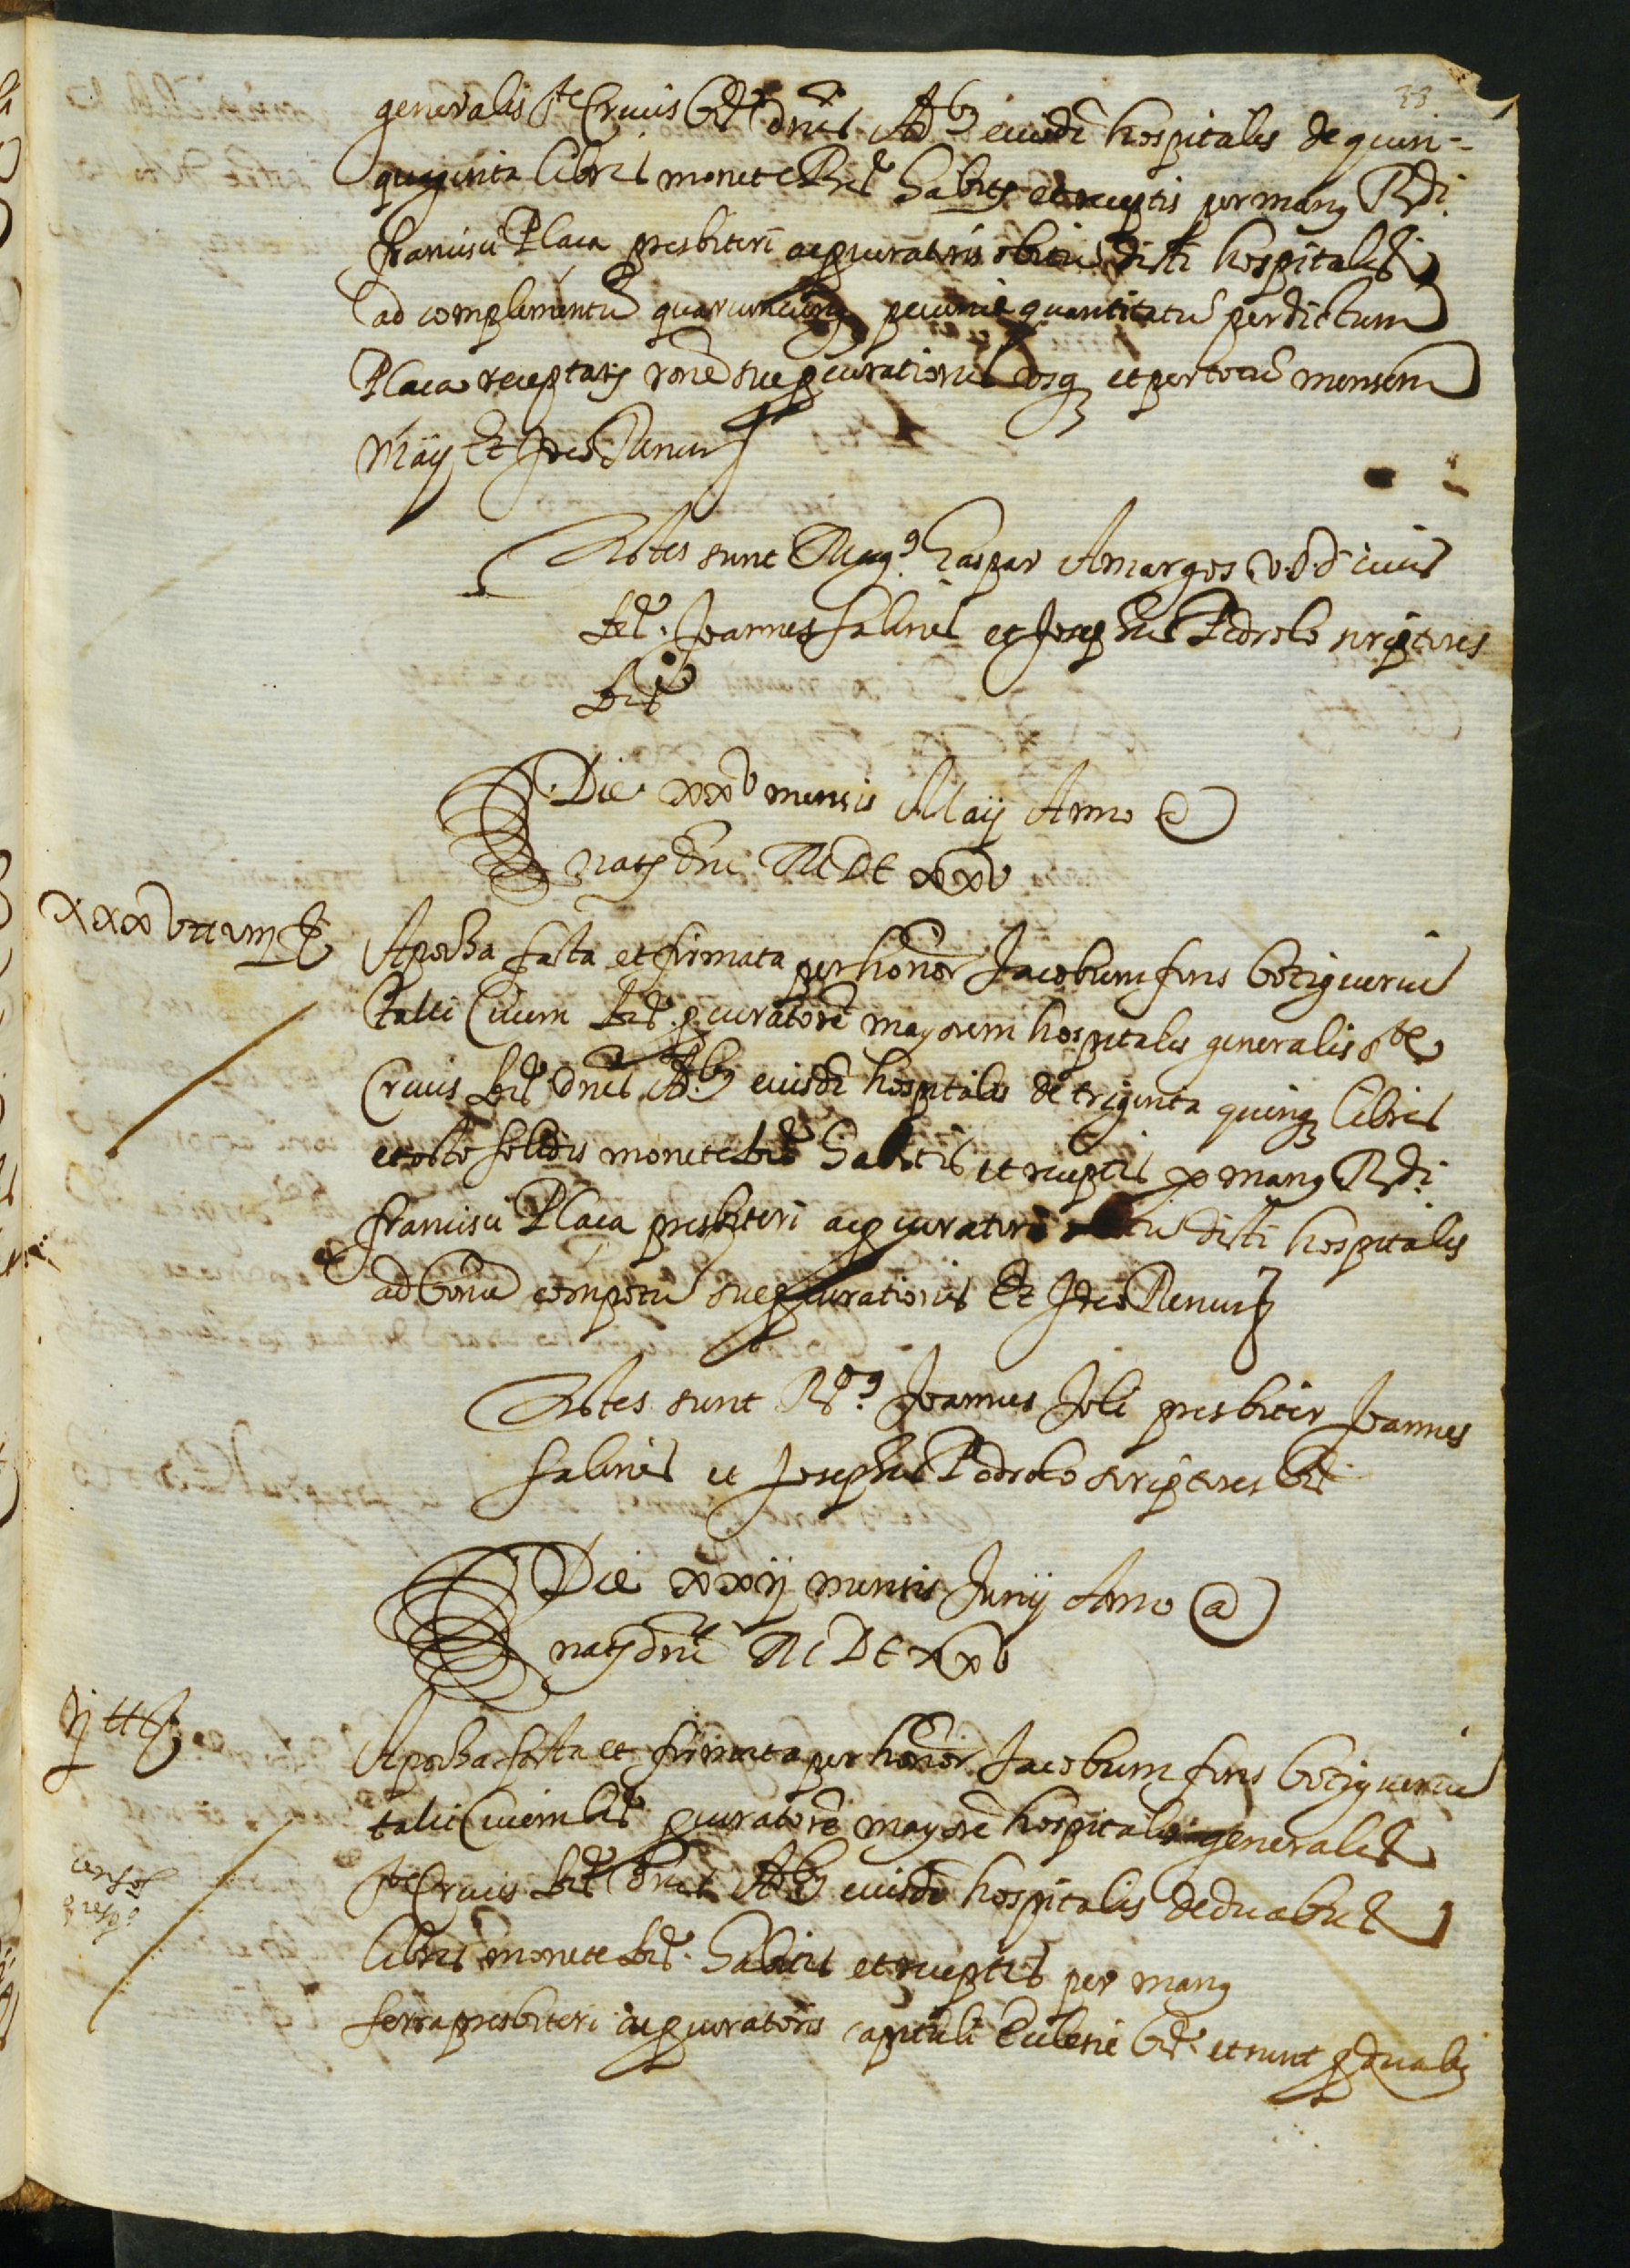 33
generalis Ste Crucis Bne dnis Adb9 eiusdē hospitalis de quin-
quaginta libris monete Bne habitis et receptis per man9 Rdi
francisci Plaça presbiteri ac procuratoris dicti hospitalis
ad complimentū quarumcunq3 pecunie quantitatū per dictum
Plaça receptarū rōne sue procurationis usq3 et per totū mensem
Maij Et Ideo Renun
Testes sunt Mag9 Gaspar Amargos v.s.d civis
Bne. Joannes salines et Josephus Pedrolo scriptores
Bne
Die xxv mensis Maij Anno a
nat dni MDCxxv
xxxv ll viij s
Apocha facta et firmata per honor Jacobum fons botiguerium
talli Civem Bne procuratorē mayorem hospitalis generalis Ste
Crucis Bne Dnis Adb9 eiusdē hospitalis de triginta quinq3 libris
et octo solidis monete Bne habitis et receptis per man9 Rdi
francisci Plaça presbiteri ac procuratoris dicti hospitalis
ad bonū compotū sue procurationis Et Ideo Renun
Testes sunt Rds Joannes Joli presbiter Joannes
salines et Josephus Pedrolo scriptores Bne
Die xxij mensis Junij Anno a
nat dni MDCxxv
ij ll
Apocha facta et firmata per honor Jacobum fons botiguerium
talli Civem Bne procuratorē mayorē hospitalis generalis
Ste Crucis Bne Dnis Adb9 eiusdē hospitalis de duabus
libris monete Bne habitis et receptis per man9
serra presbiteri ac procuratoris capituli Ecclesie Bne et sunt pro duab9